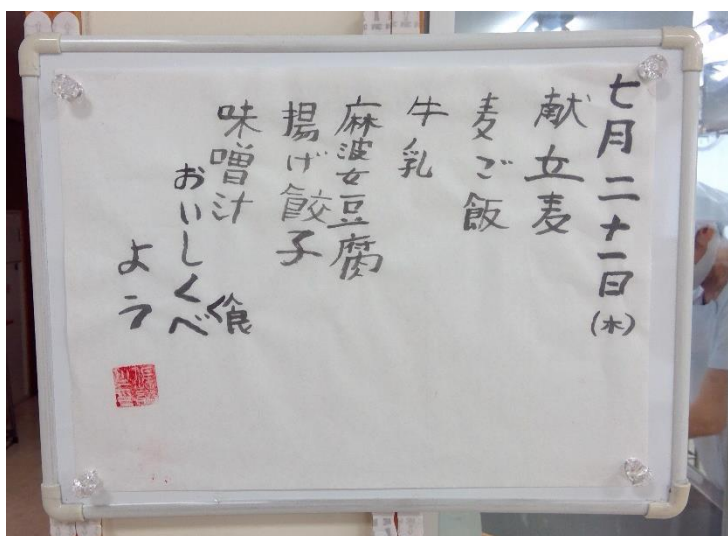 七月二十一日(木)
献立麦
麦ご飯
牛乳
麻婆豆腐
揚げ餃子
味噌汁
おいしく食べ
よう